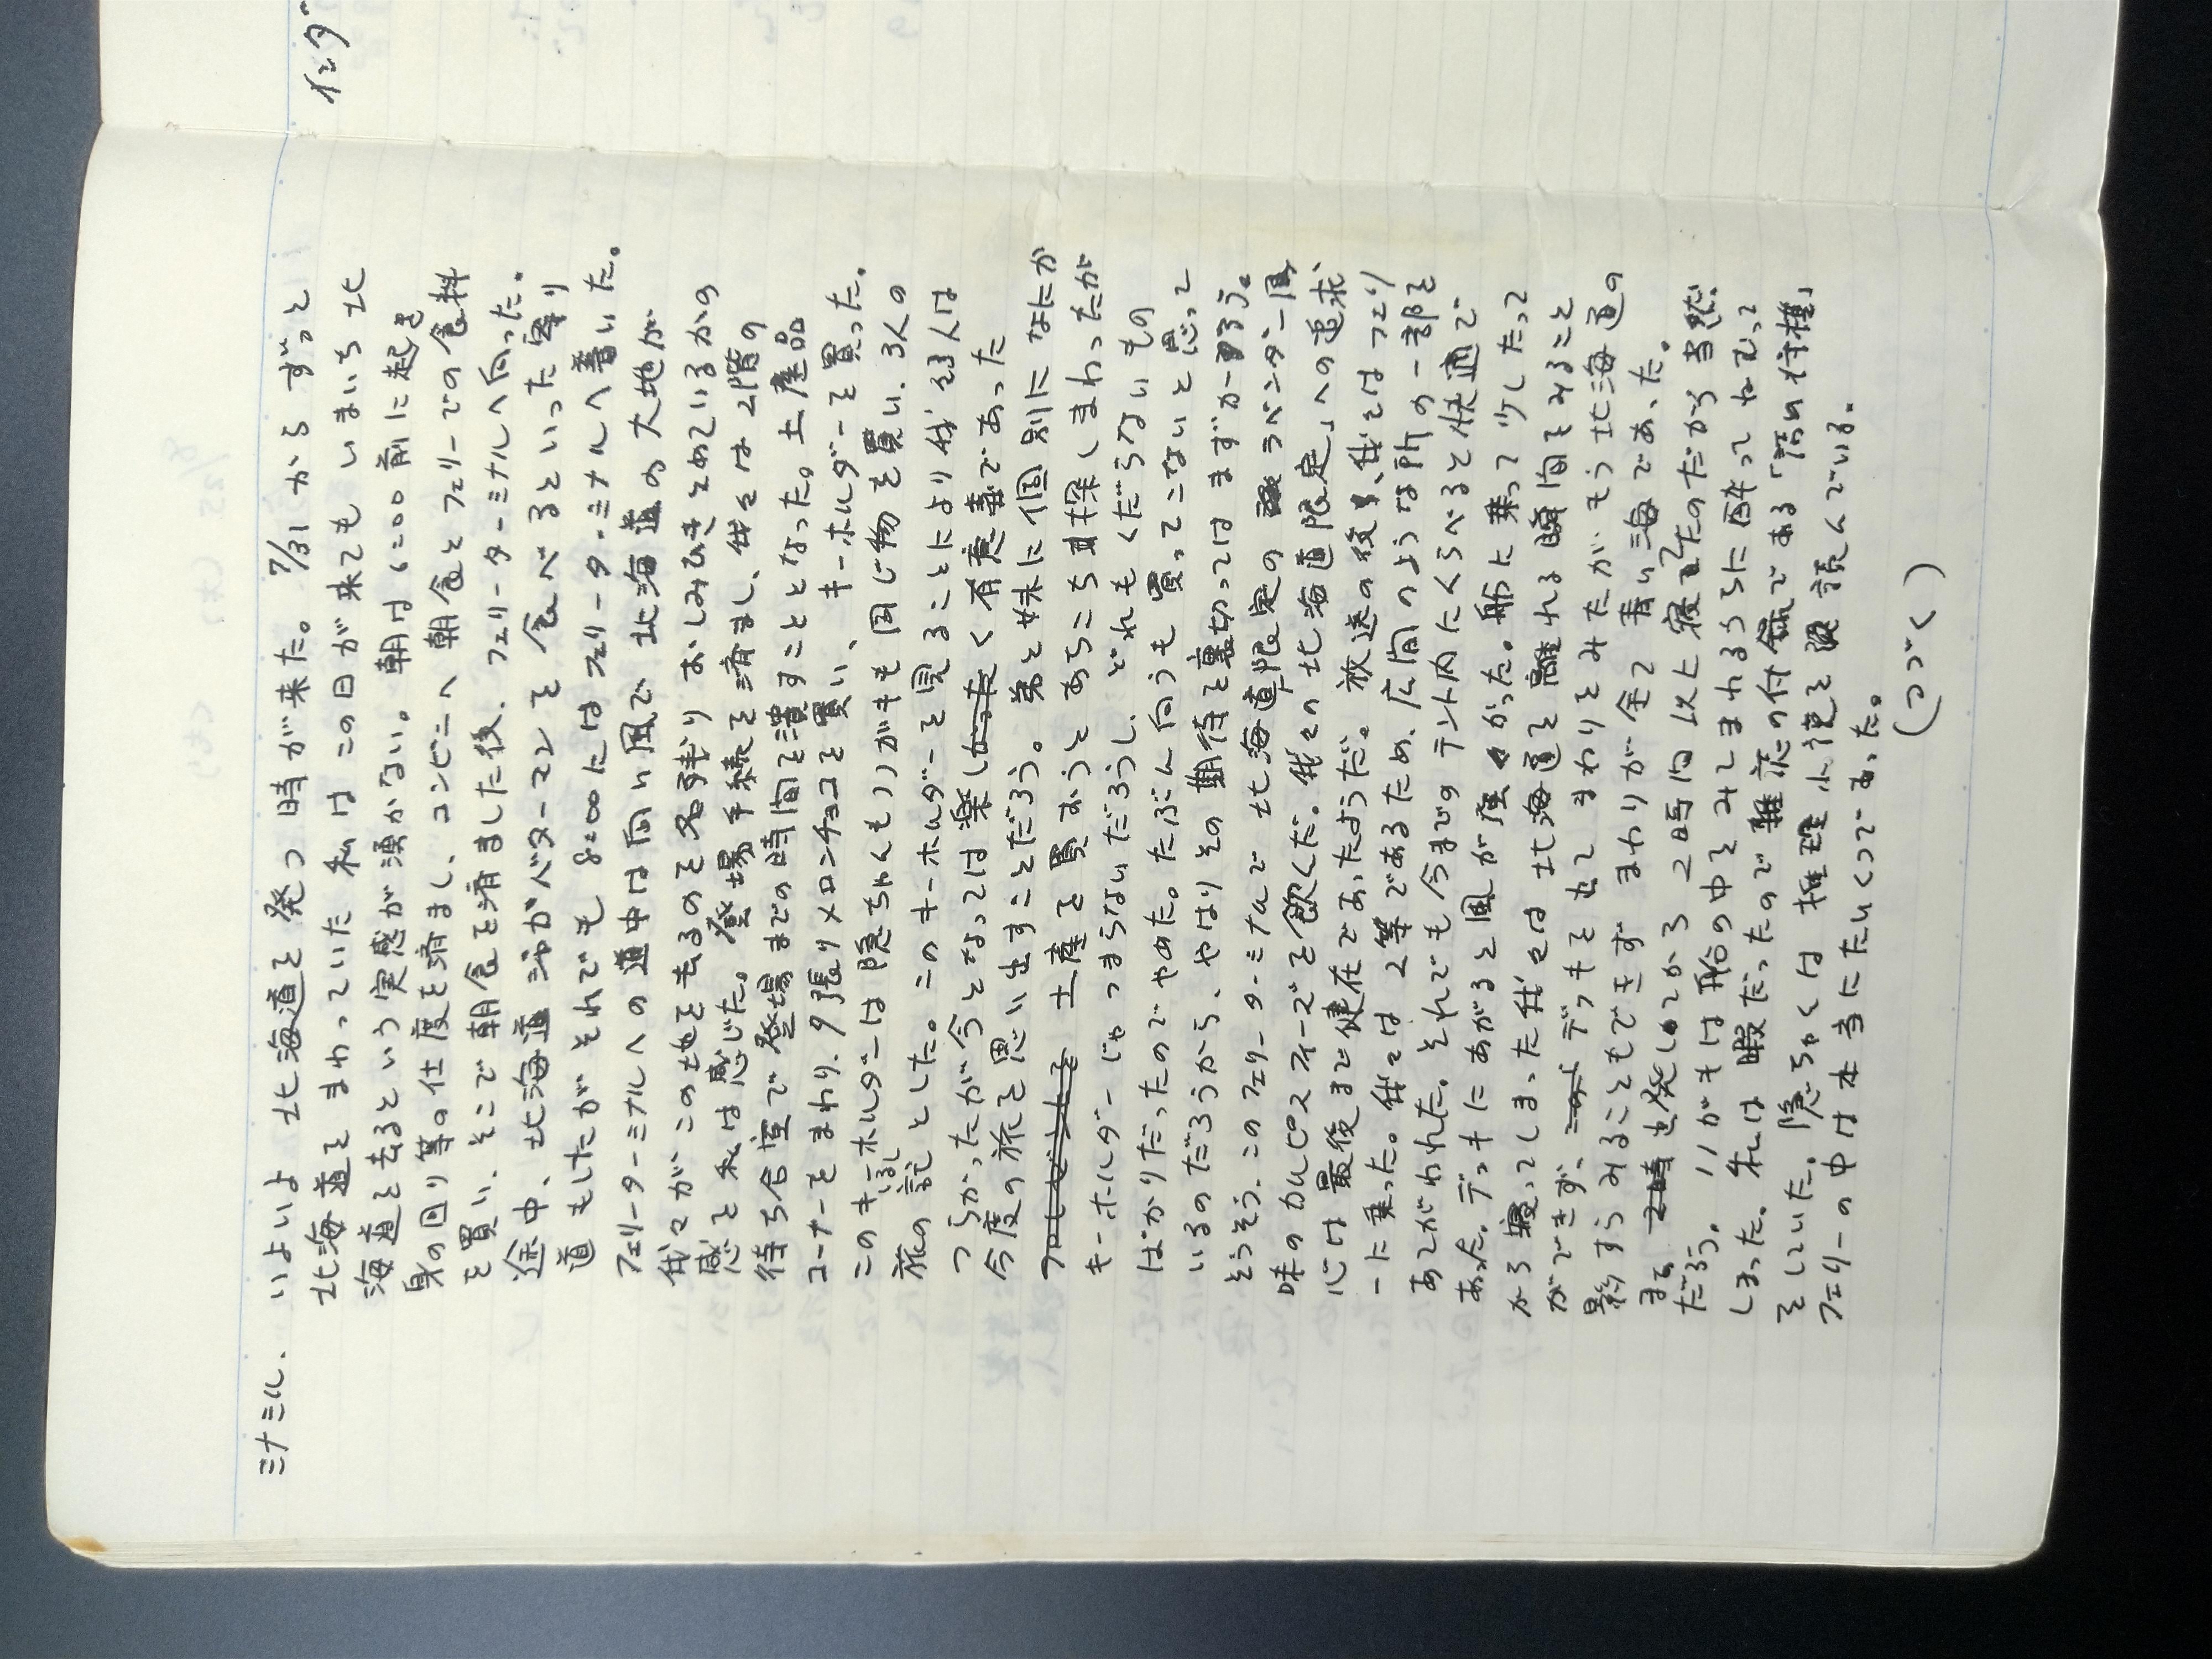 ミナミル. いよいよ 北海道を発つ時が来た。 7/31 から ずっと
北海道を まわっていた 私は この日が 来ても いまいち 北
海道を去るという 実感が湧かない。 朝は 6:00 前に起き
身の回り等の仕度を済まし、コンビニへ 朝食と フェリーでの 食料
を買い、そこで 朝食を済ました後、フェリーターミナルへ向った。
途中、北海道 ジガバターマン を 食べるといった 寄り
道 もしたが それでも 8:00 には フェリーターミナルへ 着いた。
フェリーターミナルへの 道中は 向い風で 北海道の大地が
我々が この地を去るのを 名残り おしみひきとめているかの
感を 私は 感じた。 登場手続を済まし、我々は 2階の
待ち合室で 登場までの時間を潰すこととなった。土産品
コーナーをまわり、夕張りメロンチョコを買い、 キーホルダーを買った。
このキーホルダーは 隠ちゃんも ﾉﾉがキも 同じ物を買い、3人の
旅の記しるしとした。このキーホルダーを見ることにより 我々3人は
つらかったが 今となっては 楽し く有意義であった
今度の旅を思い出すことだろう。 弟と妹に個別に なにか
土産を買おうと あちこち 探しまわったが
キーホルダーじゃ つまらないだろうし、どれもくだらないもの
ばかりだったのでやめた。たぶん向うも 買ってこないと思って
いるのだろうから、やはりその 期待を裏切っては まずかろう。
そうそう、このフェリーターミナルで 北海道限定の ラベンダー風
味のカルピスフィーズを飲んだ。我々の「北海道限定」への追求
心は 最後まで健在であったようだ。 放送の後、我々は フェリ
ーに乗った。我々は 2等であるため、広間のような所の一部を
あてがわれた。それでも今までの テント内にくらべると快適で
あった。デッキにあがると風が強かった。船に乗って 少したって
から寝ってしまった我々は 北海道を離れる瞬間をみること
ができず、 デッキを出て まわりをみたが もう北海道の
影すらみることもできず まわりが 全て 青い海であった。
まぁ 出発してから 2時間 以上 寝てたのだから 当然
だろう。 ﾉﾉがキは 船の中をみてまわるうちに 酔ってねむって
しまった。私は 暇だったので 雑誌の付録である「                」
をしていた。 隠ちゃんは 推理小説を 読んでいる。
フェリーの中は 本当にたいくつであった。
(つづく)
インター